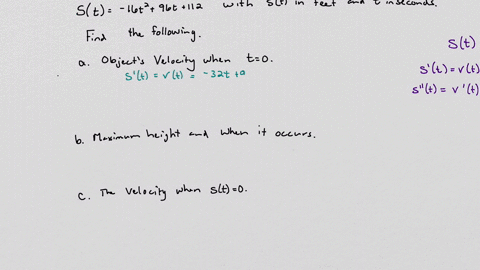 S(t) = -16t² + 96t + 112 with s(t) in feet and t in seconds.
Find the following.
a. Object's Velocity when t=0.
S'(t) = v(t) = -32t + 9
b. Maximum height and when it occurs.
c. The Velocity when s(t)=0.
S(t)
S'(t) = v(t)
S''(t) = v'(t)